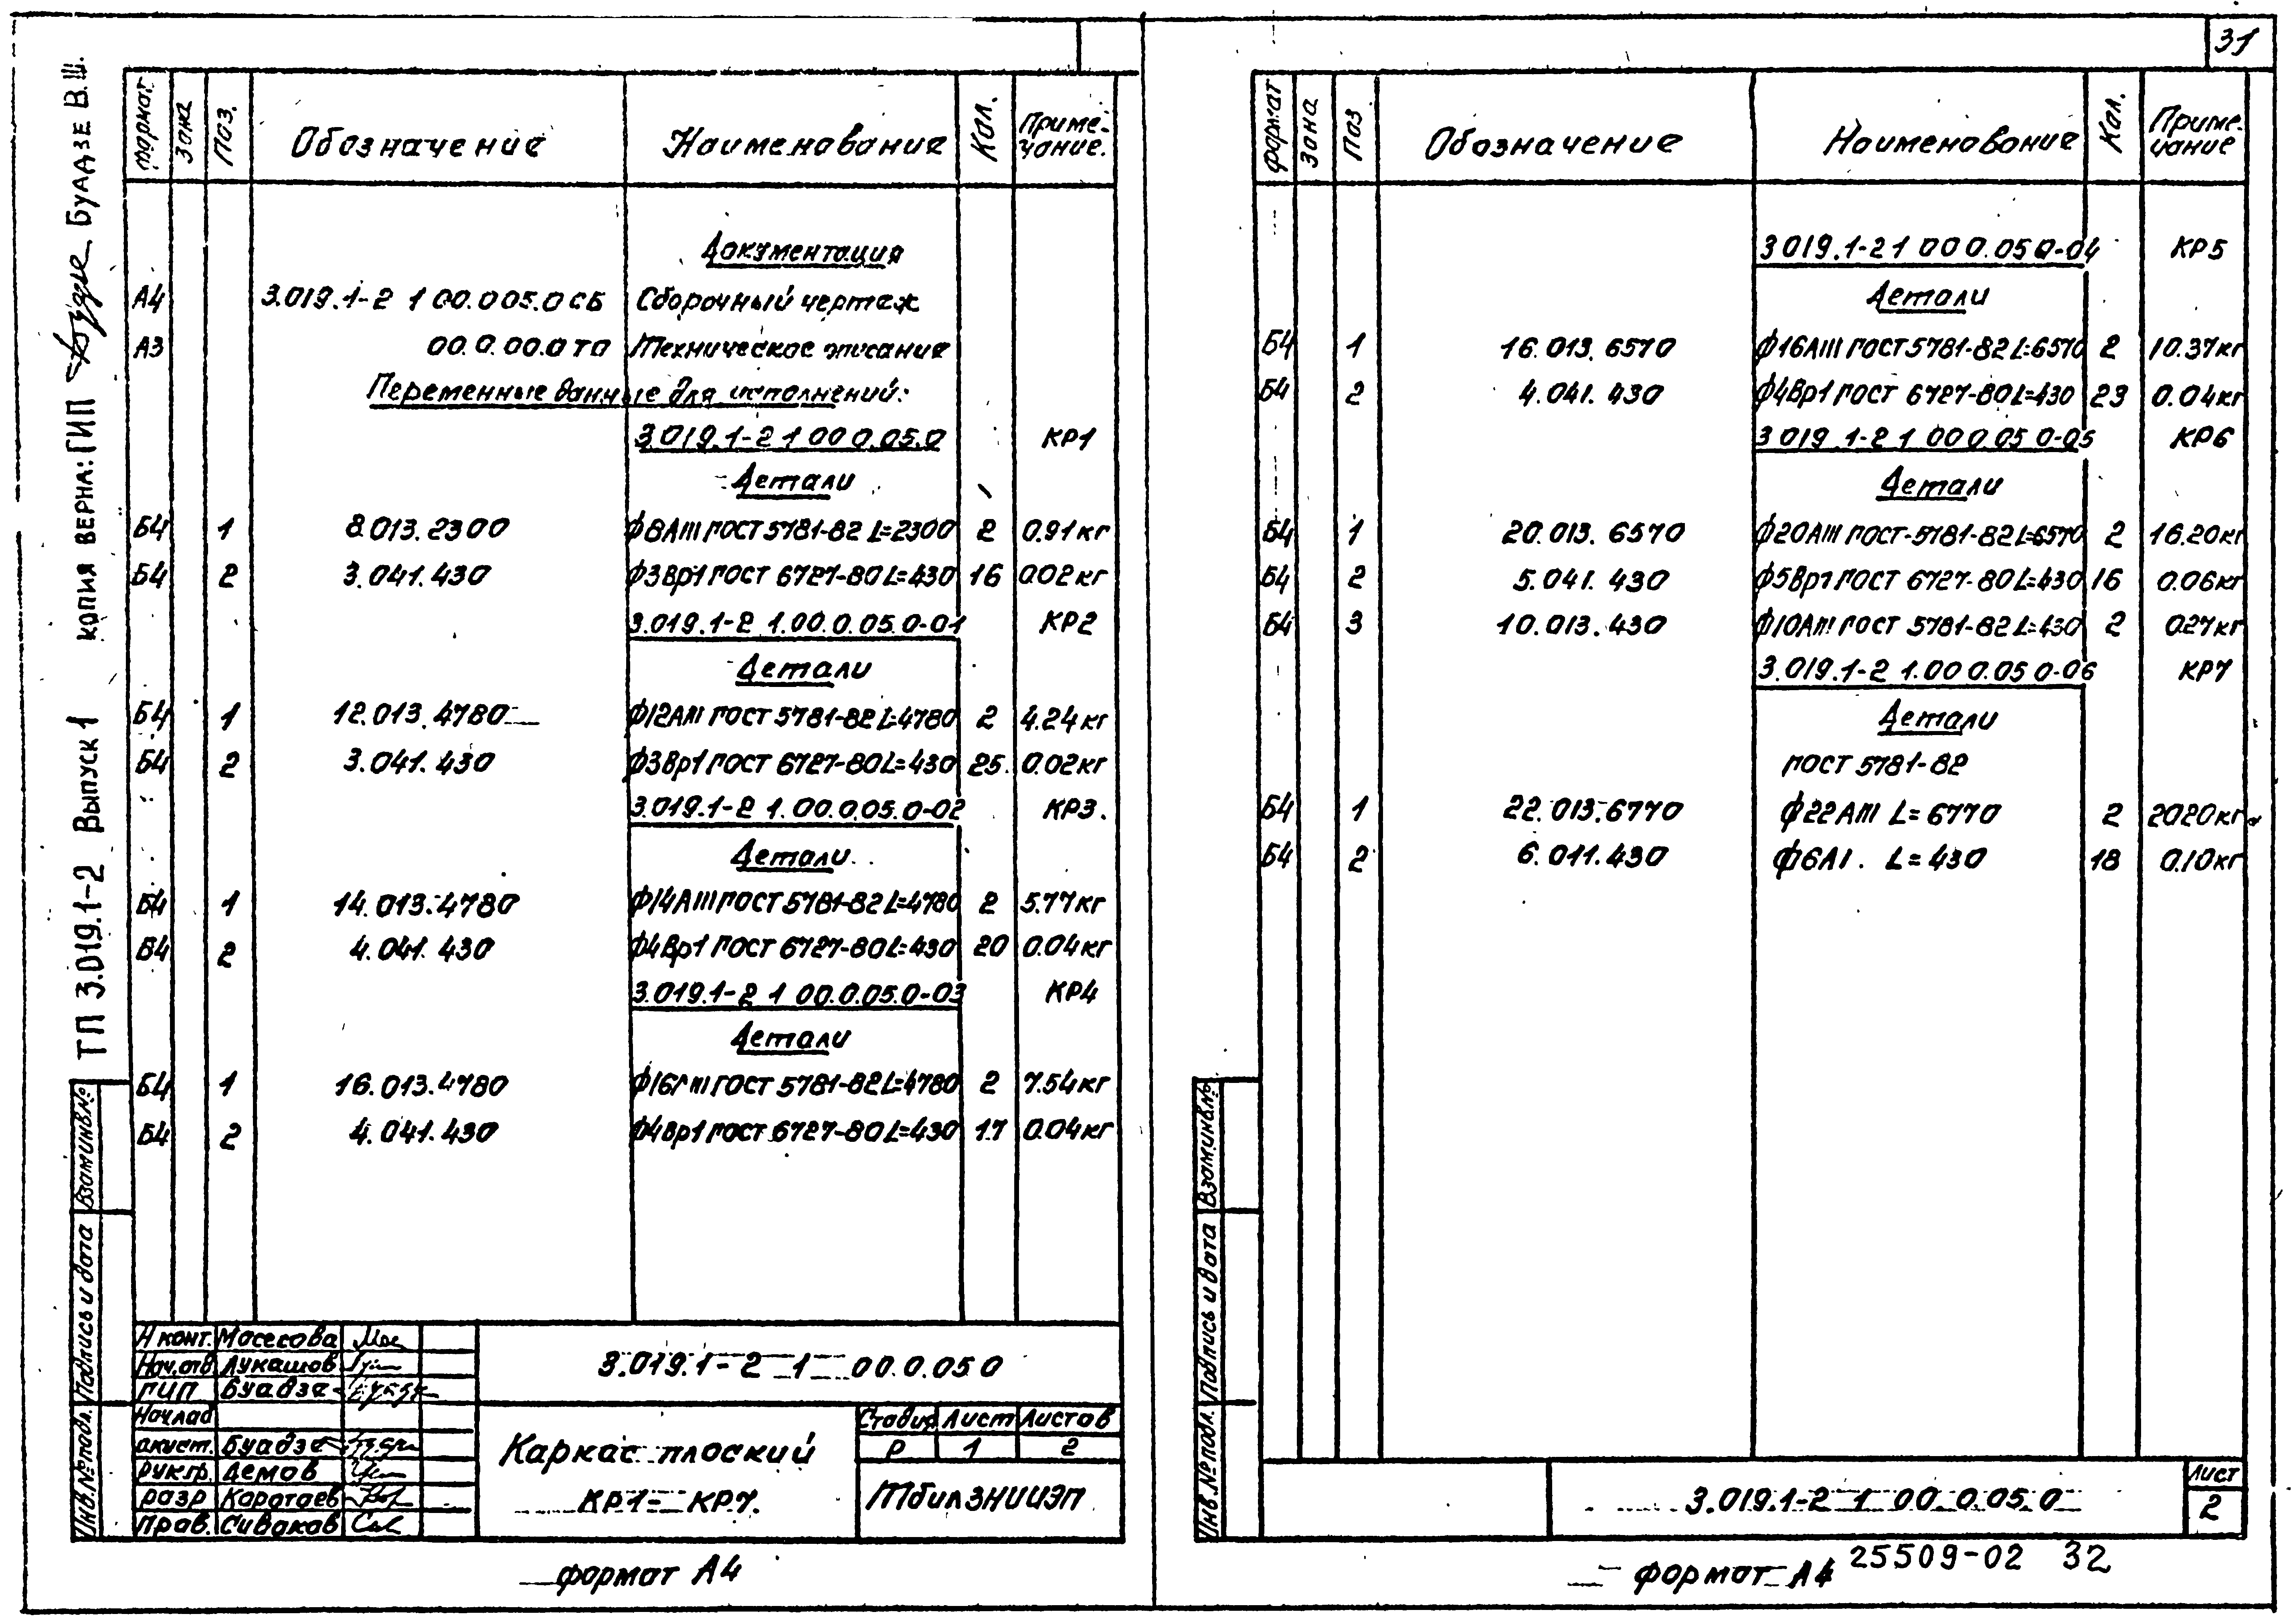 31
ТП 3.019.1-2 Выпуск 1 копия верна: ГИП Буадзе В.Ш.
формат Зона Поз. Обозначение Наименование Кол. Приме-
чание.
Документация
А4 3.019.1-2 1 00.005.0 СБ Сборочный чертеж
А3 00.0.00.0 ТО Техническое описание
Переменные данные для исполнений:
3.019.1-2 1 00 0.05.0 КР1
Детали
Б4 1 8.013.2300 ф8АIII ГОСТ 5781-82 L=2300 2 0.91кг
Б4 2 3.041.430 ф3Вр1 ГОСТ 6727-80 L=430 16 0.02кг
3.019.1-2 1.00.0.05.0-01 КР2
Детали
Б4 1 12.013.4780 ф12АIII ГОСТ 5781-82 L=4780 2 4.24кг
Б4 2 3.041.430 ф3Вр1 ГОСТ 6727-80 L=430 25. 0.02кг
3.019.1-2 1.00.0.05.0-02 КР3.
Детали
Б4 1 14.013.4780 ф14АIII ГОСТ 5781-82 L=4780 2 5.77кг
Б4 2 4.041.430 ф4Вр1 ГОСТ 6727-80 L=430 20 0.04кг
3.019.1-2 1 00.0.05.0-03 КР4
Детали
Б4 1 16.013.4780 ф16АIII ГОСТ 5781-82 L=4780 2 7.54кг
Б4 2 4.041.430 ф4Вр1 ГОСТ 6727-80 L=430 17 0.04кг
Взам.инв.№
Подпись и дата
Инв.№ подл.
Н конт. Мосесова
Нач.отд Лукашов
ГИП Буадзе
Нач лаб
акуст. Буадзе
рук.гр. Демов
разр Каратаев
пров. Сиваков
3.019.1-2 1 00.0.05 0
Каркас плоский
КР1- КР7.
Стадия Лист Листов
Р 1 2
ТбилЗНИИЭП
формат А4
формат Зона Поз Обозначение Наименование Кол. Приме-
чание
3 019.1-2 1 00 0.05 0-04 КР5
Детали
Б4 1 16.013.6570 ф16АIII ГОСТ 5781-82 L=6570 2 10.37кг
Б4 2 4.041.430 ф4Вр1 ГОСТ 6727-80 L=430 23 0.04кг
3 019 1-2 1 00 0.05 0-05 КР6
Детали
Б4 1 20.013.6570 ф20АIII ГОСТ-5781-82 L=6570 2 16.20кг
Б4 2 5.041.430 ф5Вр1 ГОСТ 6727-80 L=430 16 0.06кг
Б4 3 10.013.430 ф10АIII ГОСТ 5781-82 L=430 2 0.27кг
3.019.1-2 1.00 0.05 0-06 КР7
Детали
ГОСТ 5781-82
Б4 1 22.013.6770 ф22АIII L=6770 2 20.20кг
Б4 2 6.011.430 ф6АI. L=430 18 0.10кг
Взам.инв.№
Подпись и дата
Инв.№ подл.
3.019.1-2 1 00.0.05.0
Лист
2
формат А4 25509-02 32